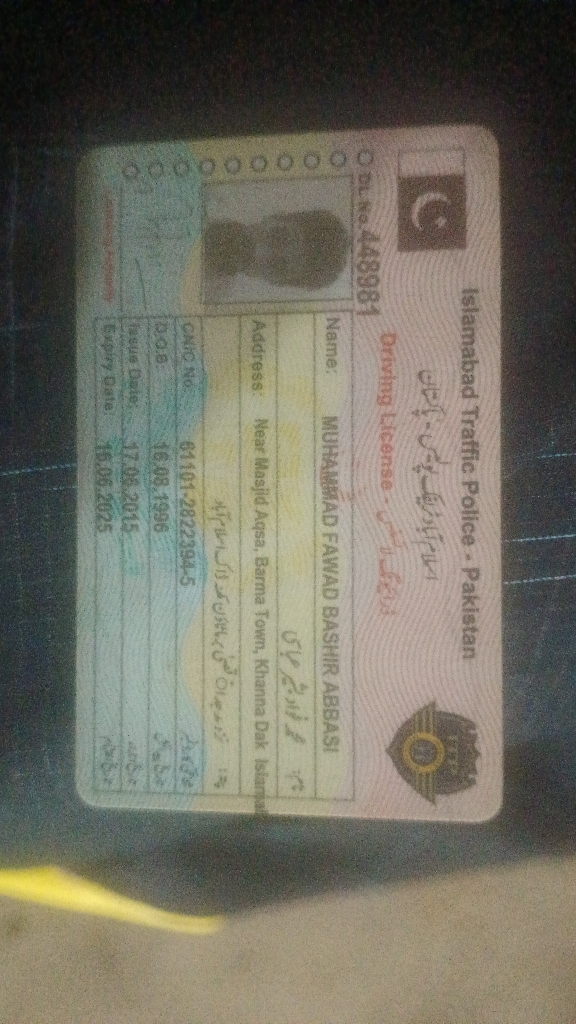 Islamabad Traffic Police - Pakistan
اسلام آباد ٹریفک پولیس - پاکستان
Driving License - ڈرائیونگ لائسنس
DL No. 448981
Name: MUHAMMAD FAWAD BASHIR ABBASI
نام: محمد فواد بشیر عباسی
Address: Near Masjid Aqsa, Barma Town, Khanna Dak Islamab
پتہ:
CNIC No. 61101-2822394-5
D.O.B. 16.08.1996
Issue Date: 17.06.2015
Expiry Date: 16.06.2025